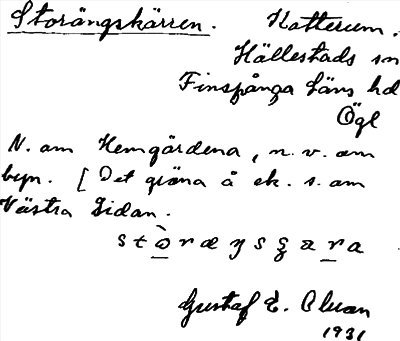 Storängskärren. Katterum.
Hällestads sn
Finspånga läns hd
Ögl
N. om Hemgårdena, n.v. om
byn. [Det gräna å ek. s. om
Västra Lidan.
Gustaf E.
1931